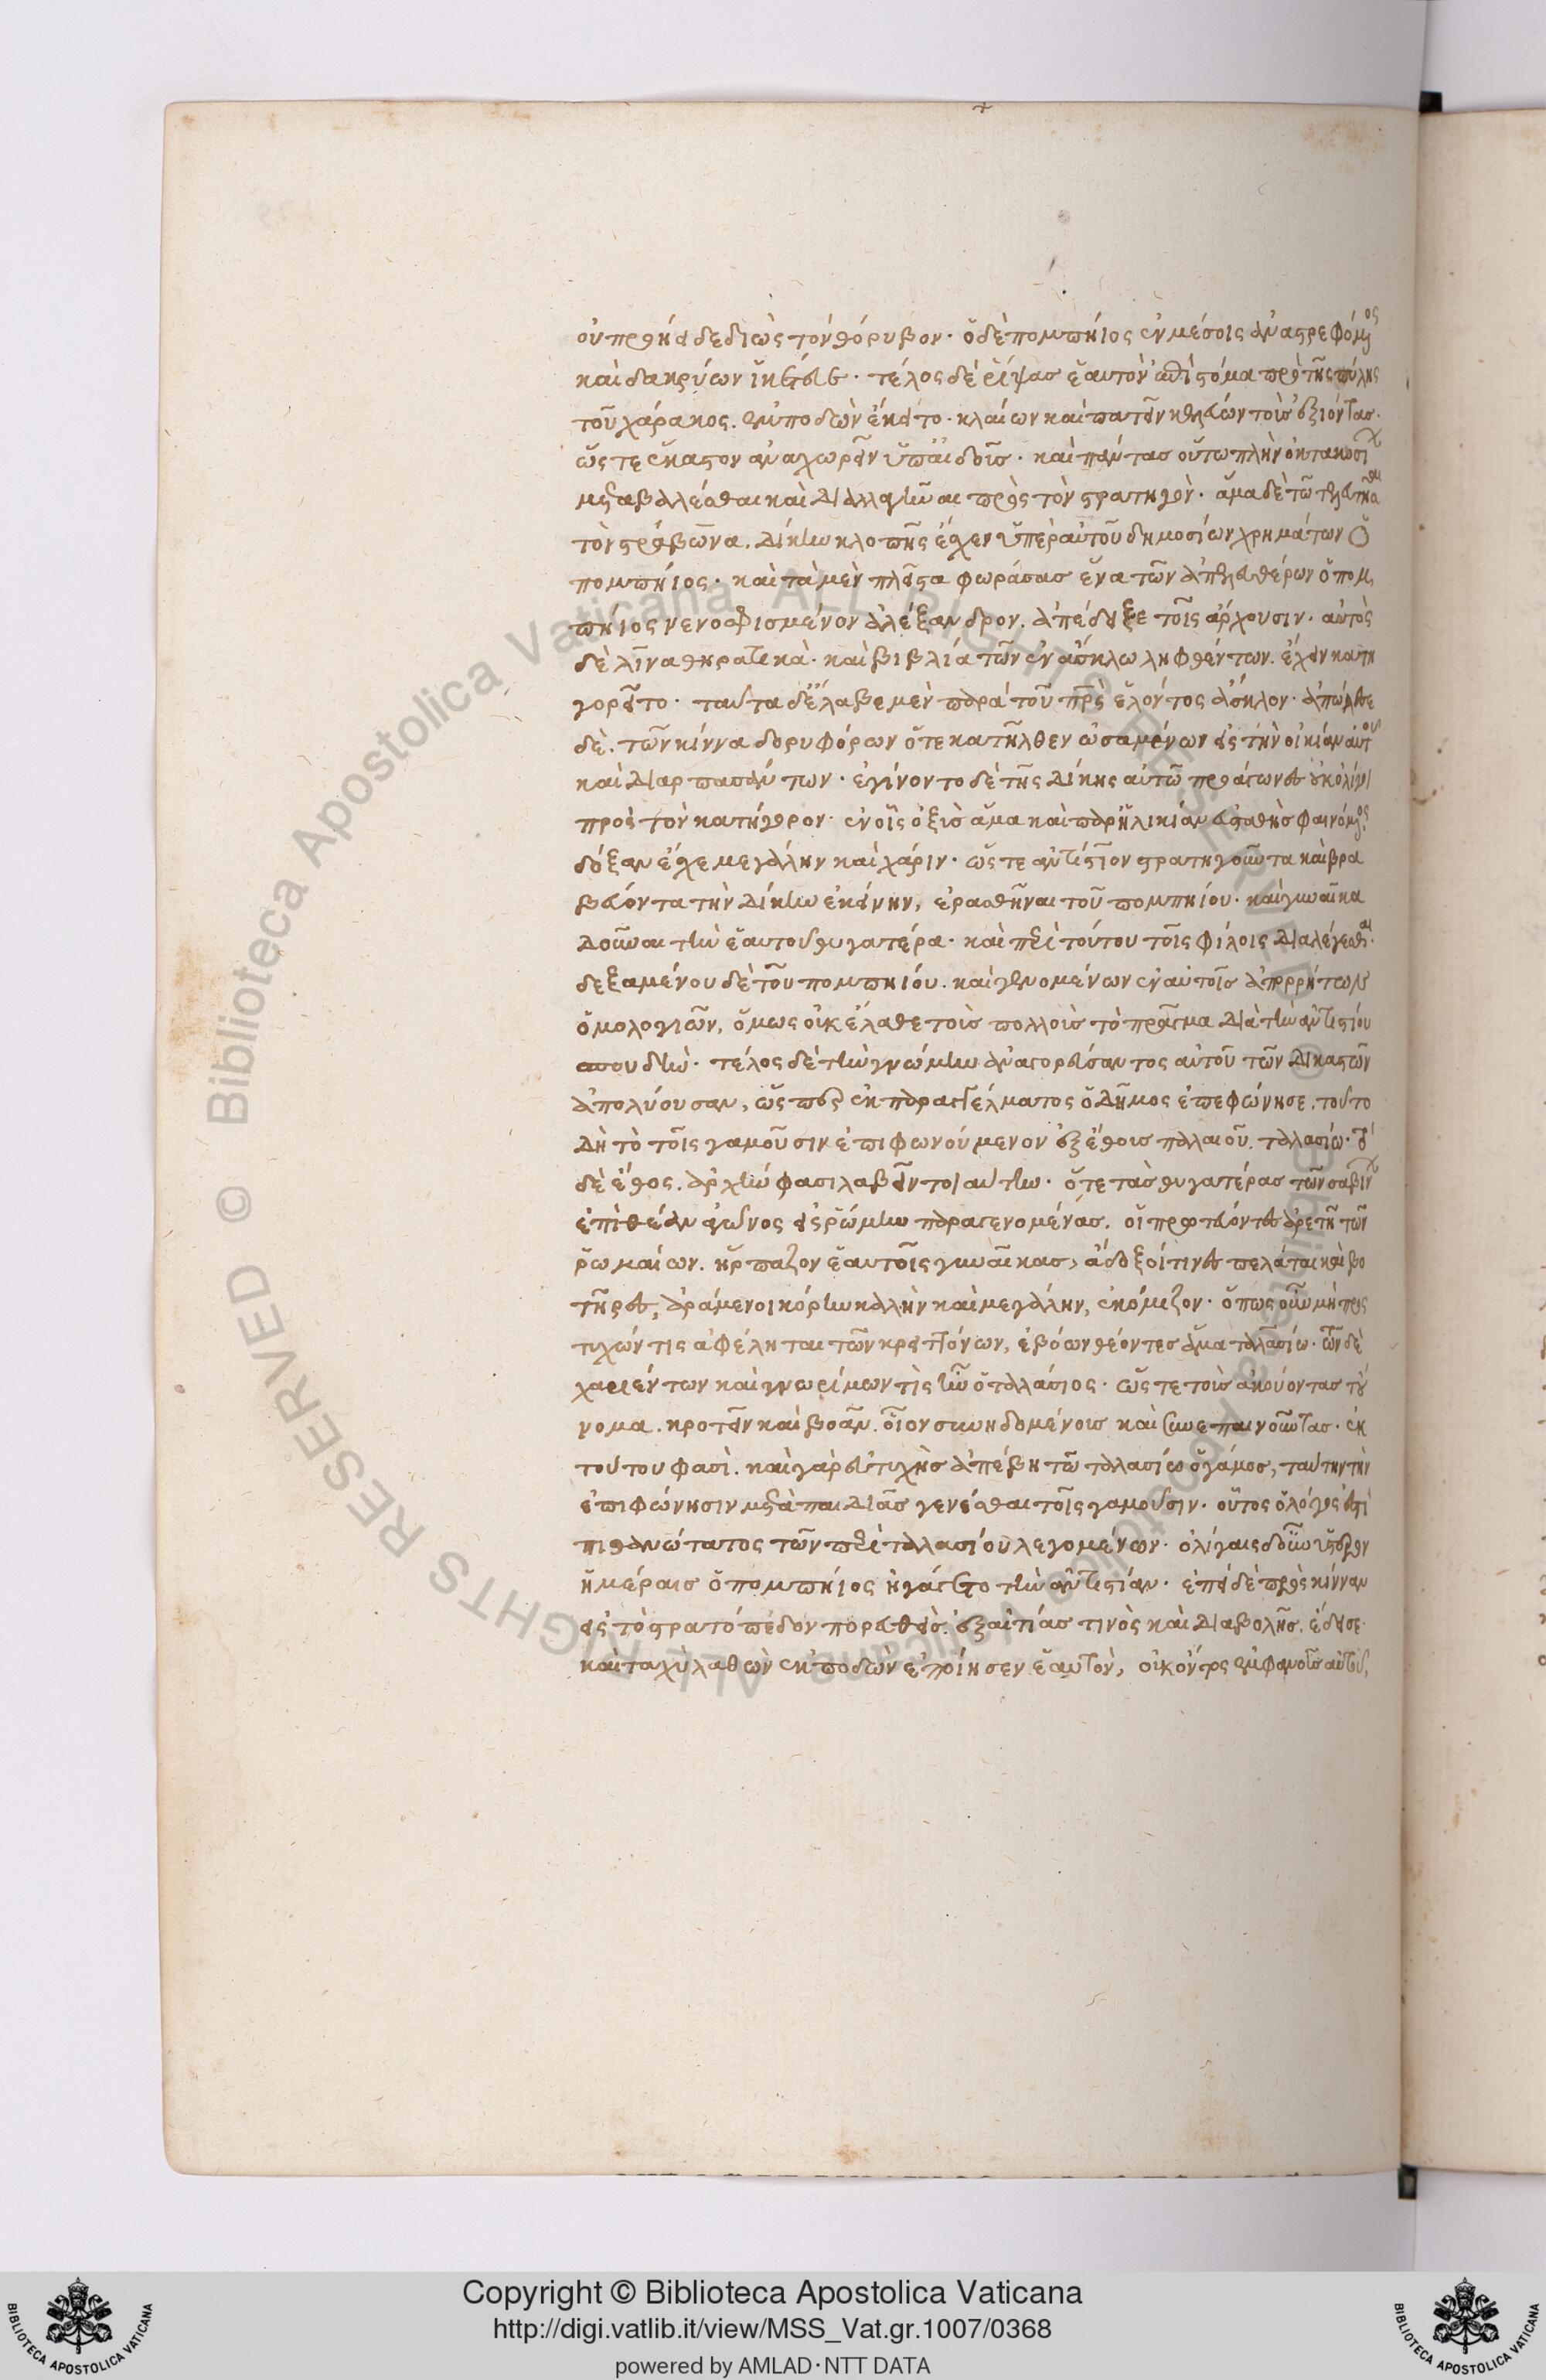 οὐ προῄει δεδιὼς τὸν θόρυβον· ὁ δὲ πομπήιος ἐν μέσοις ἀναστρεφόμενος
καὶ δακρύων ἱκέτευε· τέλος δὲ ῥίψας ἑαυτὸν ἐπὶ στόμα πρὸ τῆς πύλης
τοῦ χάρακος. ἐμποδὼν ἔκειτο· κλαίων καὶ πατεῖν κελεύων τοὺς ἐξιόντας·
ὥστε ἕκαστον ἀναχωρεῖν ὑπ' αἰδοῦς· καὶ πάντας οὕτω πλὴν ὀκτακοσίων
μεταβαλέσθαι καὶ διαλλαγῆναι πρὸς τὸν στρατηγόν· ἅμα δὲ τῷ τελευτῆσαι
τὸν στράβωνα. δίκην κλοπῆς ἔσχεν ὑπὲρ αὐτοῦ δημοσίων χρημάτων ὁ
πομπήιος· καὶ τὰ μὲν πλεῖστα φωράσας ἕνα τῶν ἀπελευθέρων ὁ πομ
πήιος νενοσφισμένον ἀλέξανδρον. ἀπέδειξε τοῖς ἄρχουσιν· αὐτὸς
δὲ λίνα θηρατικὰ· καὶ βιβλία τῶν ἐν ἀσκλω ληφθέντων. ἔχειν κατη
γορεῖτο· ταῦτα δὲ ἔλαβε μὲν παρὰ τοῦ πατρὸς ἑλόντος ἄσκλον· ἀπώλεσε
δὲ. τῶν κίννα δορυφόρων ὅτε κατῆλθεν ὠσαμένων εἰς τὴν οἰκίαν αὐτοῦ
καὶ διαρπασάντων· ἐγίνοντο δὲ τῆς δίκης αὐτῷ προάγωνες οὐκ ὀλίγοι
πρὸς τὸν κατήγορον· ἐν οἷς ὀξὺς ἅμα καὶ παρ' ἡλικίαν εὐσταθὴς φαινόμενος
δόξαν ἔσχε μεγάλην καὶ χάριν· ὥστε ἀντίστιον στρατηγοῦντα καὶ βρα
βεύοντα τὴν δίκην ἐκείνην, ἐρασθῆναι τοῦ πομπηίου· καὶ γυναῖκα
δοῦναι τὴν ἑαυτοῦ θυγατέρα· καὶ περὶ τούτου τοῖς φίλοις διαλέγεσθαι·
δεξαμένου δὲ τοῦ πομπηίου. καὶ γενομένων ἐν αὐτοῖς ἀπορρήτων
ὁμολογιῶν, ὅμως οὐκ ἔλαθε τοὺς πολλοὺς τὸ πρᾶγμα διὰ τὴν ἀντιστίου
σπουδὴν· τέλος δὲ τὴν γνώμην ἀναγορεύσαντος αὐτοῦ τῶν δικαστῶν
ἀπολύουσαν, ὥσπερ ἐκ παραγγέλματος ὁ δῆμος ἐπεφώνησε. τοῦτο
δὴ τὸ τοῖς γαμοῦσιν ἐπιφωνούμενον ἐξ ἔθους παλαιοῦ. ταλασίω· τὸ
δὲ ἔθος. ἀρχήν φασι λαβεῖν τοιαύτην· ὅτε τὰς θυγατέρας τῶν σαβίνων
ἐπὶ θέαν ἀγῶνος εἰς ῥώμην παραγενομένας. οἱ πρωτεύοντες ἀρετῇ τῶν
ῥωμαίων. ἥρπαζον ἑαυτοῖς γυναῖκας, ἄδοξοί τινες πελάται καὶ βο
τῆρες, ἀράμενοι κόρην καλὴν καὶ μεγάλην, ἐκόμιζον· ὅπως οὖν μὴ προς
τυχών τις ἀφέληται τῶν κρειττόνων, ἐβόων θέοντες ἅμα ταλασίω· ὧν δὲ
χαριέντων καὶ γνωρίμων τὶς ἦν ὁ ταλάσιος· ὥστε τοὺς ἀκούοντας τοὔ
νομα. κροτεῖν καὶ βοᾶν. οἷον συνηδομένους καὶ συνεπαινοῦντας· ἐκ
τούτου φασὶ. καὶ γὰρ εὐτυχὴς ἀπέβη τῷ ταλασίῳ ὁ γάμος, ταύτην τὴν
ἐπιφώνησιν μετὰ παιδιᾶς γενέσθαι τοῖς γαμοῦσιν· οὗτος ὁ λόγος ἐστὶ
πιθανώτατος τῶν περὶ ταλασίου λεγομένων· ὀλίγαις δ' οὖν ὕστερον
ἡμέραις ὁ πομπήιος ἠγάγετο τὴν ἀντιστίαν· ἐπεὶ δὲ πρὸς κίνναν
εἰς τὸ στρατόπεδον πορευθεὶς. ἐξ αἰτίας τινὸς καὶ διαβολῆς. ἔδεισε·
καὶ ταχὺ λαθὼν ἐκποδὼν ἐποίησεν ἑαυτὸν, οὐκ ὄντος ἐμφανοῦς αὐτοῦ,
Copyright © Biblioteca Apostolica Vaticana
http://digi.vatlib.it/view/MSS_Vat.gr.1007/0368
powered by AMLAD·NTT DATA
BIBLIOTECA APOSTOLICA VATICANA
BIBLIOTECA APOSTOLICA VATICANA